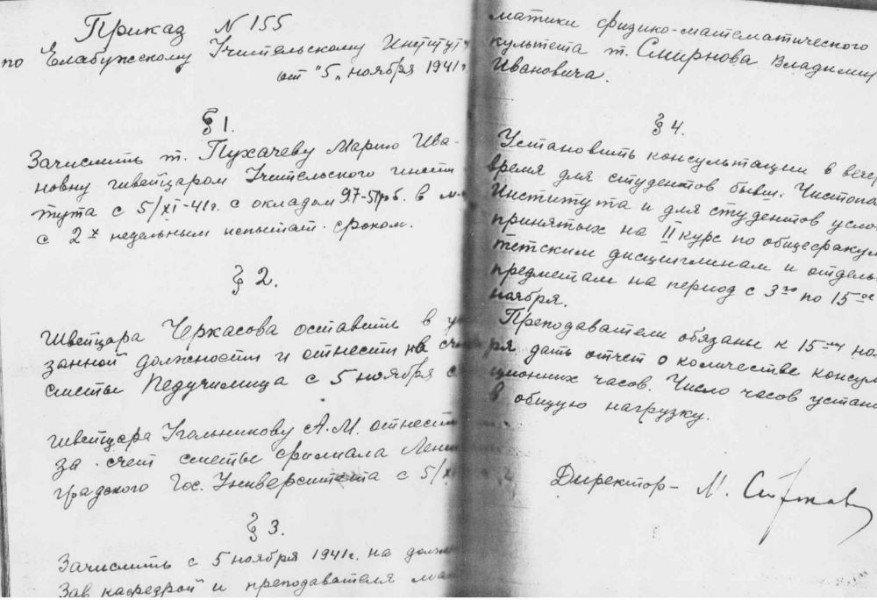 Приказ № 155
по Елабужскому Учительскому Институту
от "5" ноября 1941г.
§ 1.
Зачислить т. Пухачеву Марию Ива-
новну швейцаром Учительского инсти
тута с 5/XI-41г. с окладом 97-50 
с 2х недельным испытат. сроком.
§ 2.
Швейцара Черкасова оставить в
занной должности и отнести на
сметы Педучилища с 5 ноября
Швейцара Угольникову А.М. отнест
за счет сметы филиала Ленин
градского Гос. Университета с 5/XI
§ 3.
Зачислить с 5 ноября 1941г. на долж
Зав кафедрой и преподавателя мате
матики физико-математического
культета т. Смирнова Владимир
Ивановича.
§ 4.
Установить консультации в вечер
время для студентов бывш. Чистопо
Института и для студентов усло
принятых на II курс по общефакуль
тетским дисциплинам и отдель
предметам на период с 3го по 15ое
ноября.
Преподаватели обязаны к 15 ноя
ря дать отчет о количестве консуль
ционных часов. Число часов устано
в общую нагрузку.
Директор-